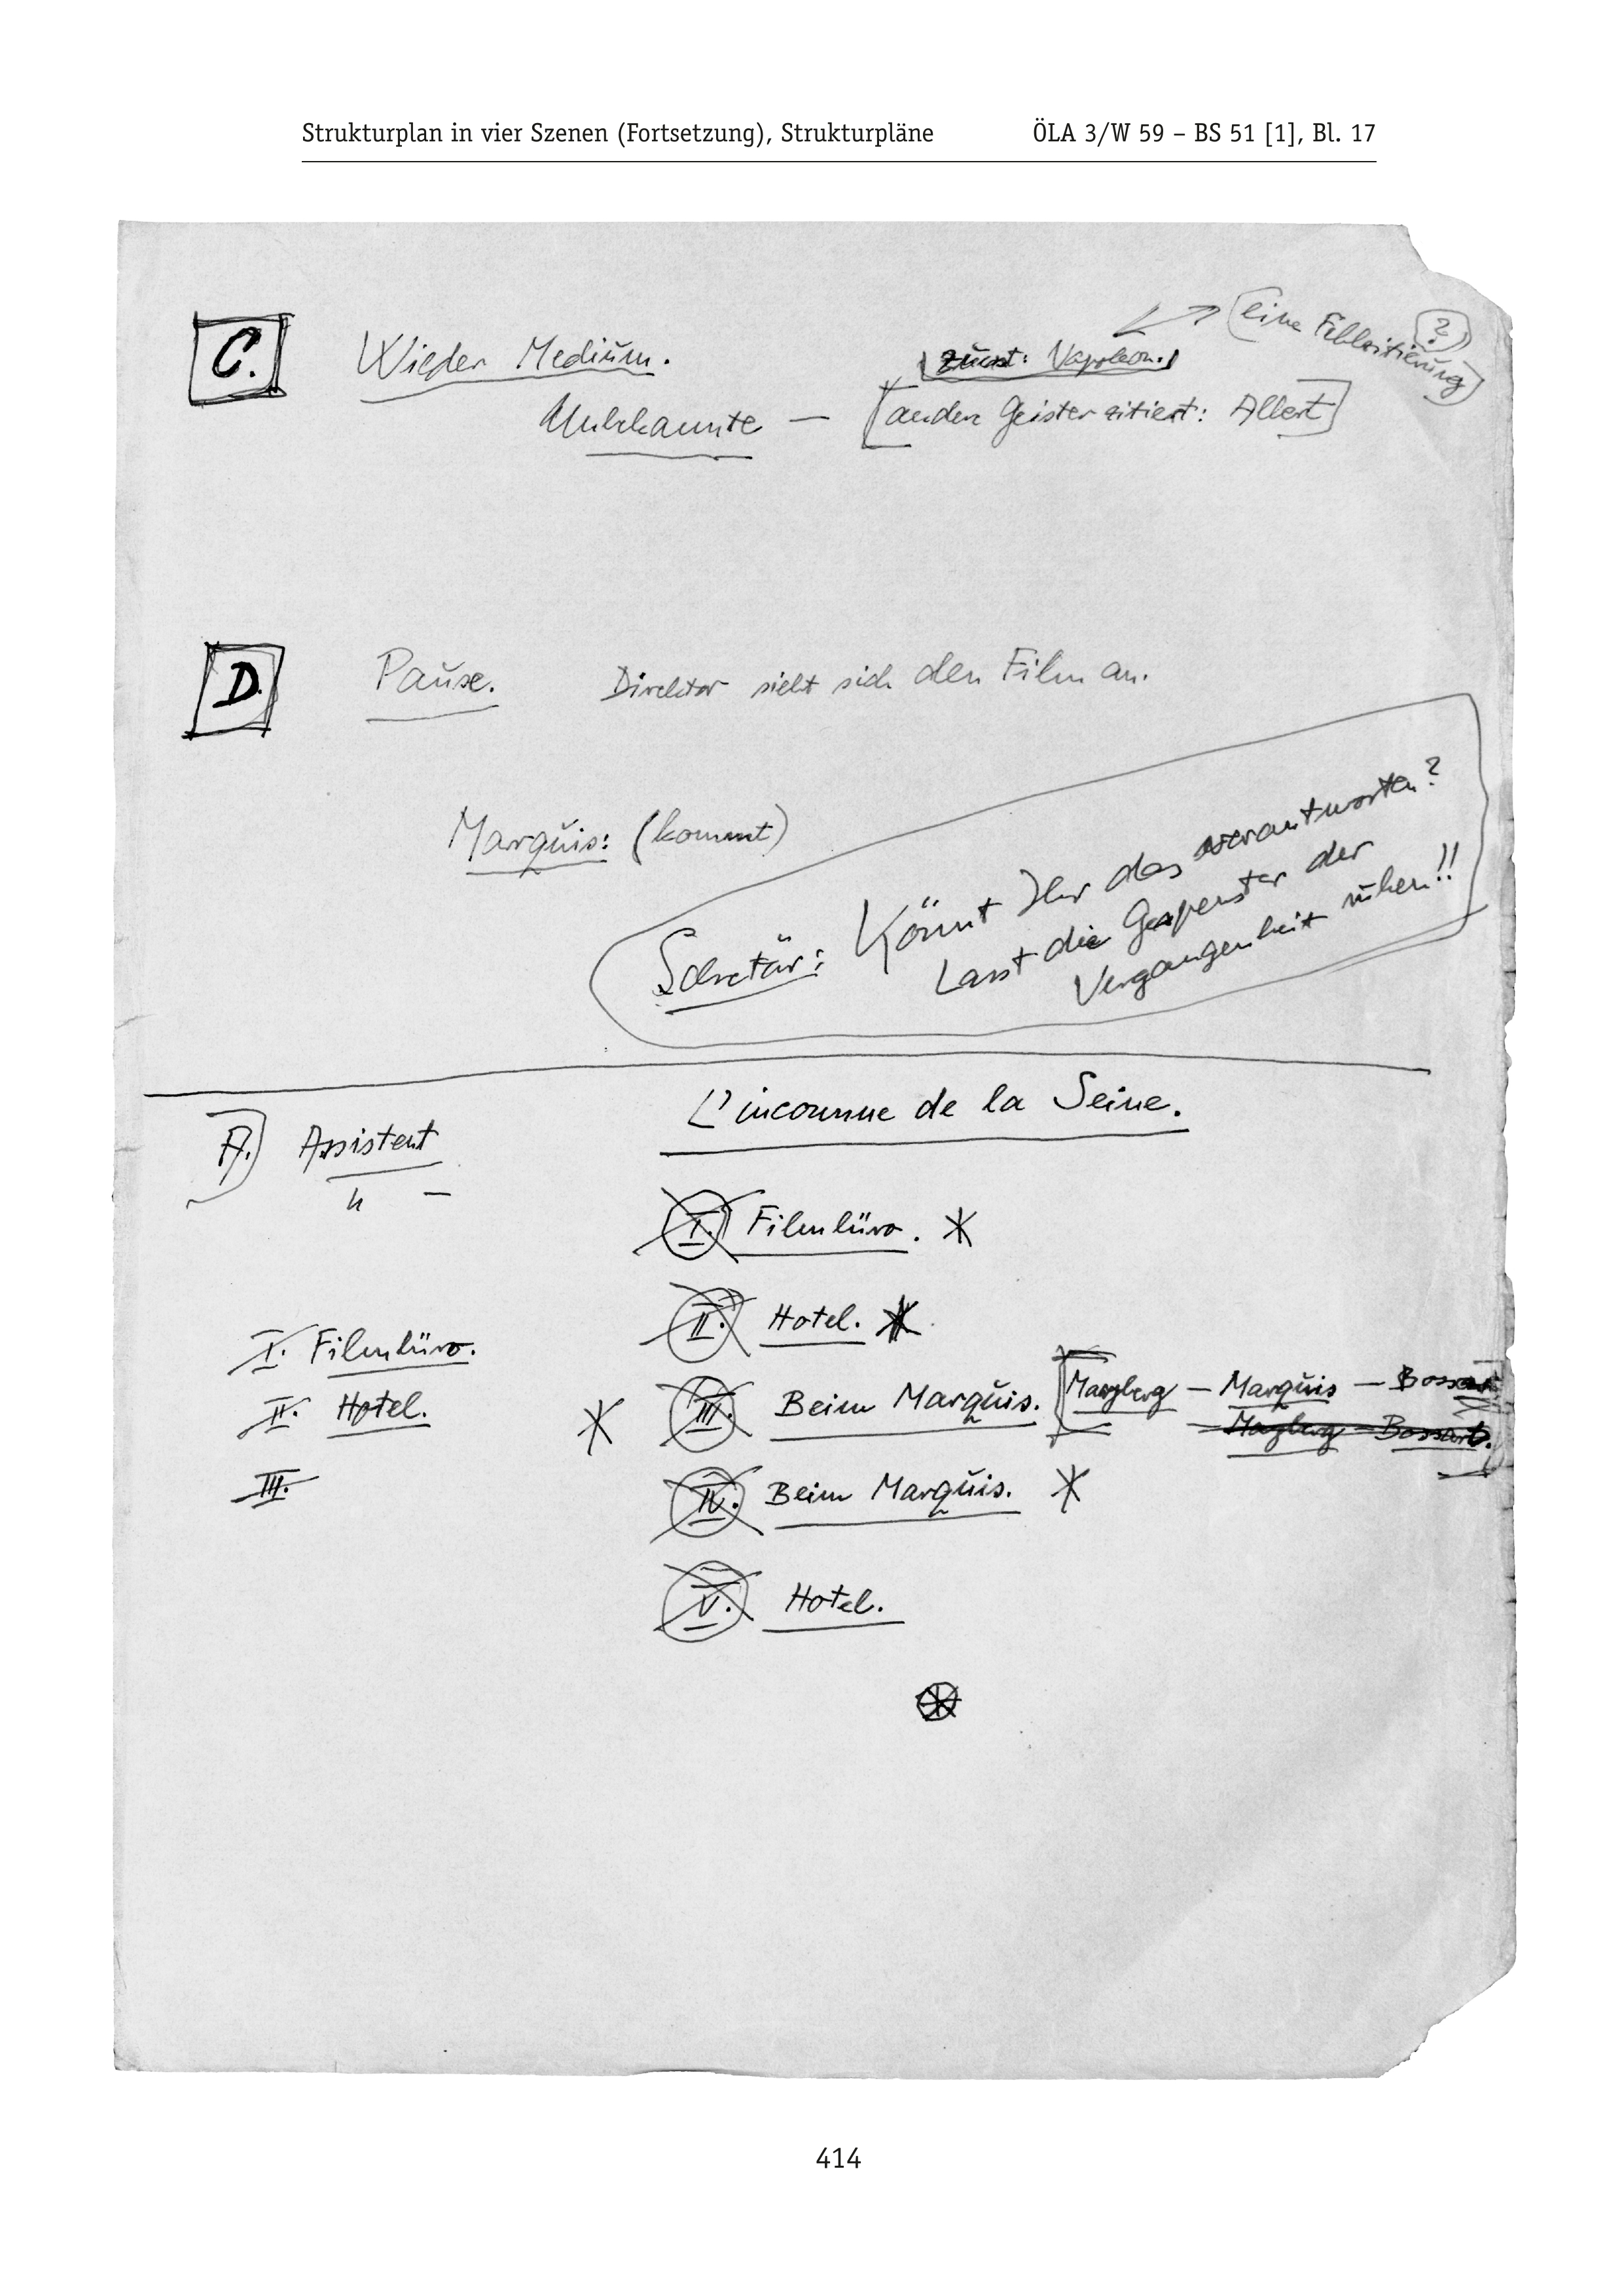 Strukturplan in vier Szenen (Fortsetzung), Strukturpläne ÖLA 3/W 59 – BS 51 [1], Bl. 17
eine Fehlzitierung ?
C. Wieder Medium. zuerst: Napoleon.
Unbekannte — [andere Geister zitiert: Albert]
D. Pause. Direktor sieht sich den Film an.
Marquis: (kommt)
Sekretär: Könnt Ihr das verantworten?
Lasst die Gespenster der
Vergangenheit ruhen!!
L'inconnue de la Seine.
A.) Assistent
I. Filmbüro.
II. Hotel.
I. Filmbüro.
II. Hotel.
III. Beim Marquis. [ — Marquis — Bossart
— Bossart.
III.
IV. Beim Marquis.
V. Hotel.
414